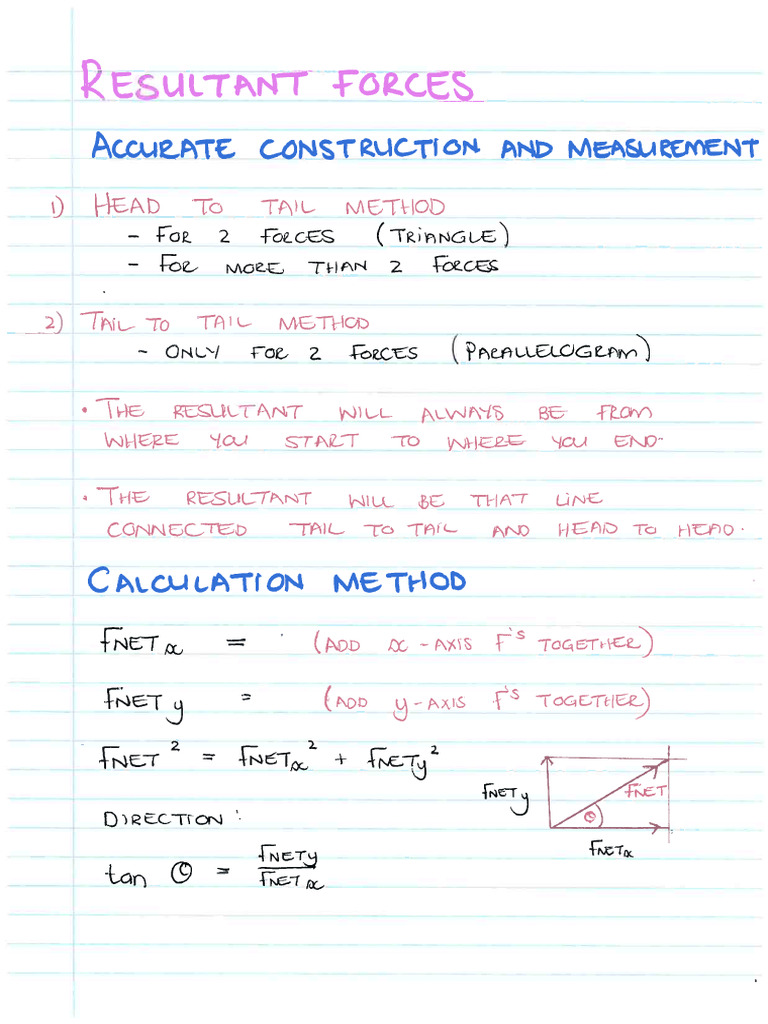 RESULTANT FORCES
ACCURATE CONSTRUCTION AND MEASUREMENT
1) HEAD TO TAIL METHOD
- FOR 2 FORCES (TRIANGLE)
- FOR MORE THAN 2 FORCES
2) TAIL TO TAIL METHOD
- ONLY FOR 2 FORCES (PARALLELOGRAM)
• THE RESULTANT WILL ALWAYS BE FROM
WHERE YOU START TO WHERE YOU END.
• THE RESULTANT WILL BE THAT LINE
CONNECTED TAIL TO TAIL AND HEAD TO HEAD.
CALCULATION METHOD
FNETx = (ADD x-AXIS F's TOGETHER)
FNETy = (ADD y-AXIS F's TOGETHER)
FNET² = FNETx² + FNETy²
DIRECTION:
tan θ = FNETy / FNETx
FNETy
FNET
θ
FNETx